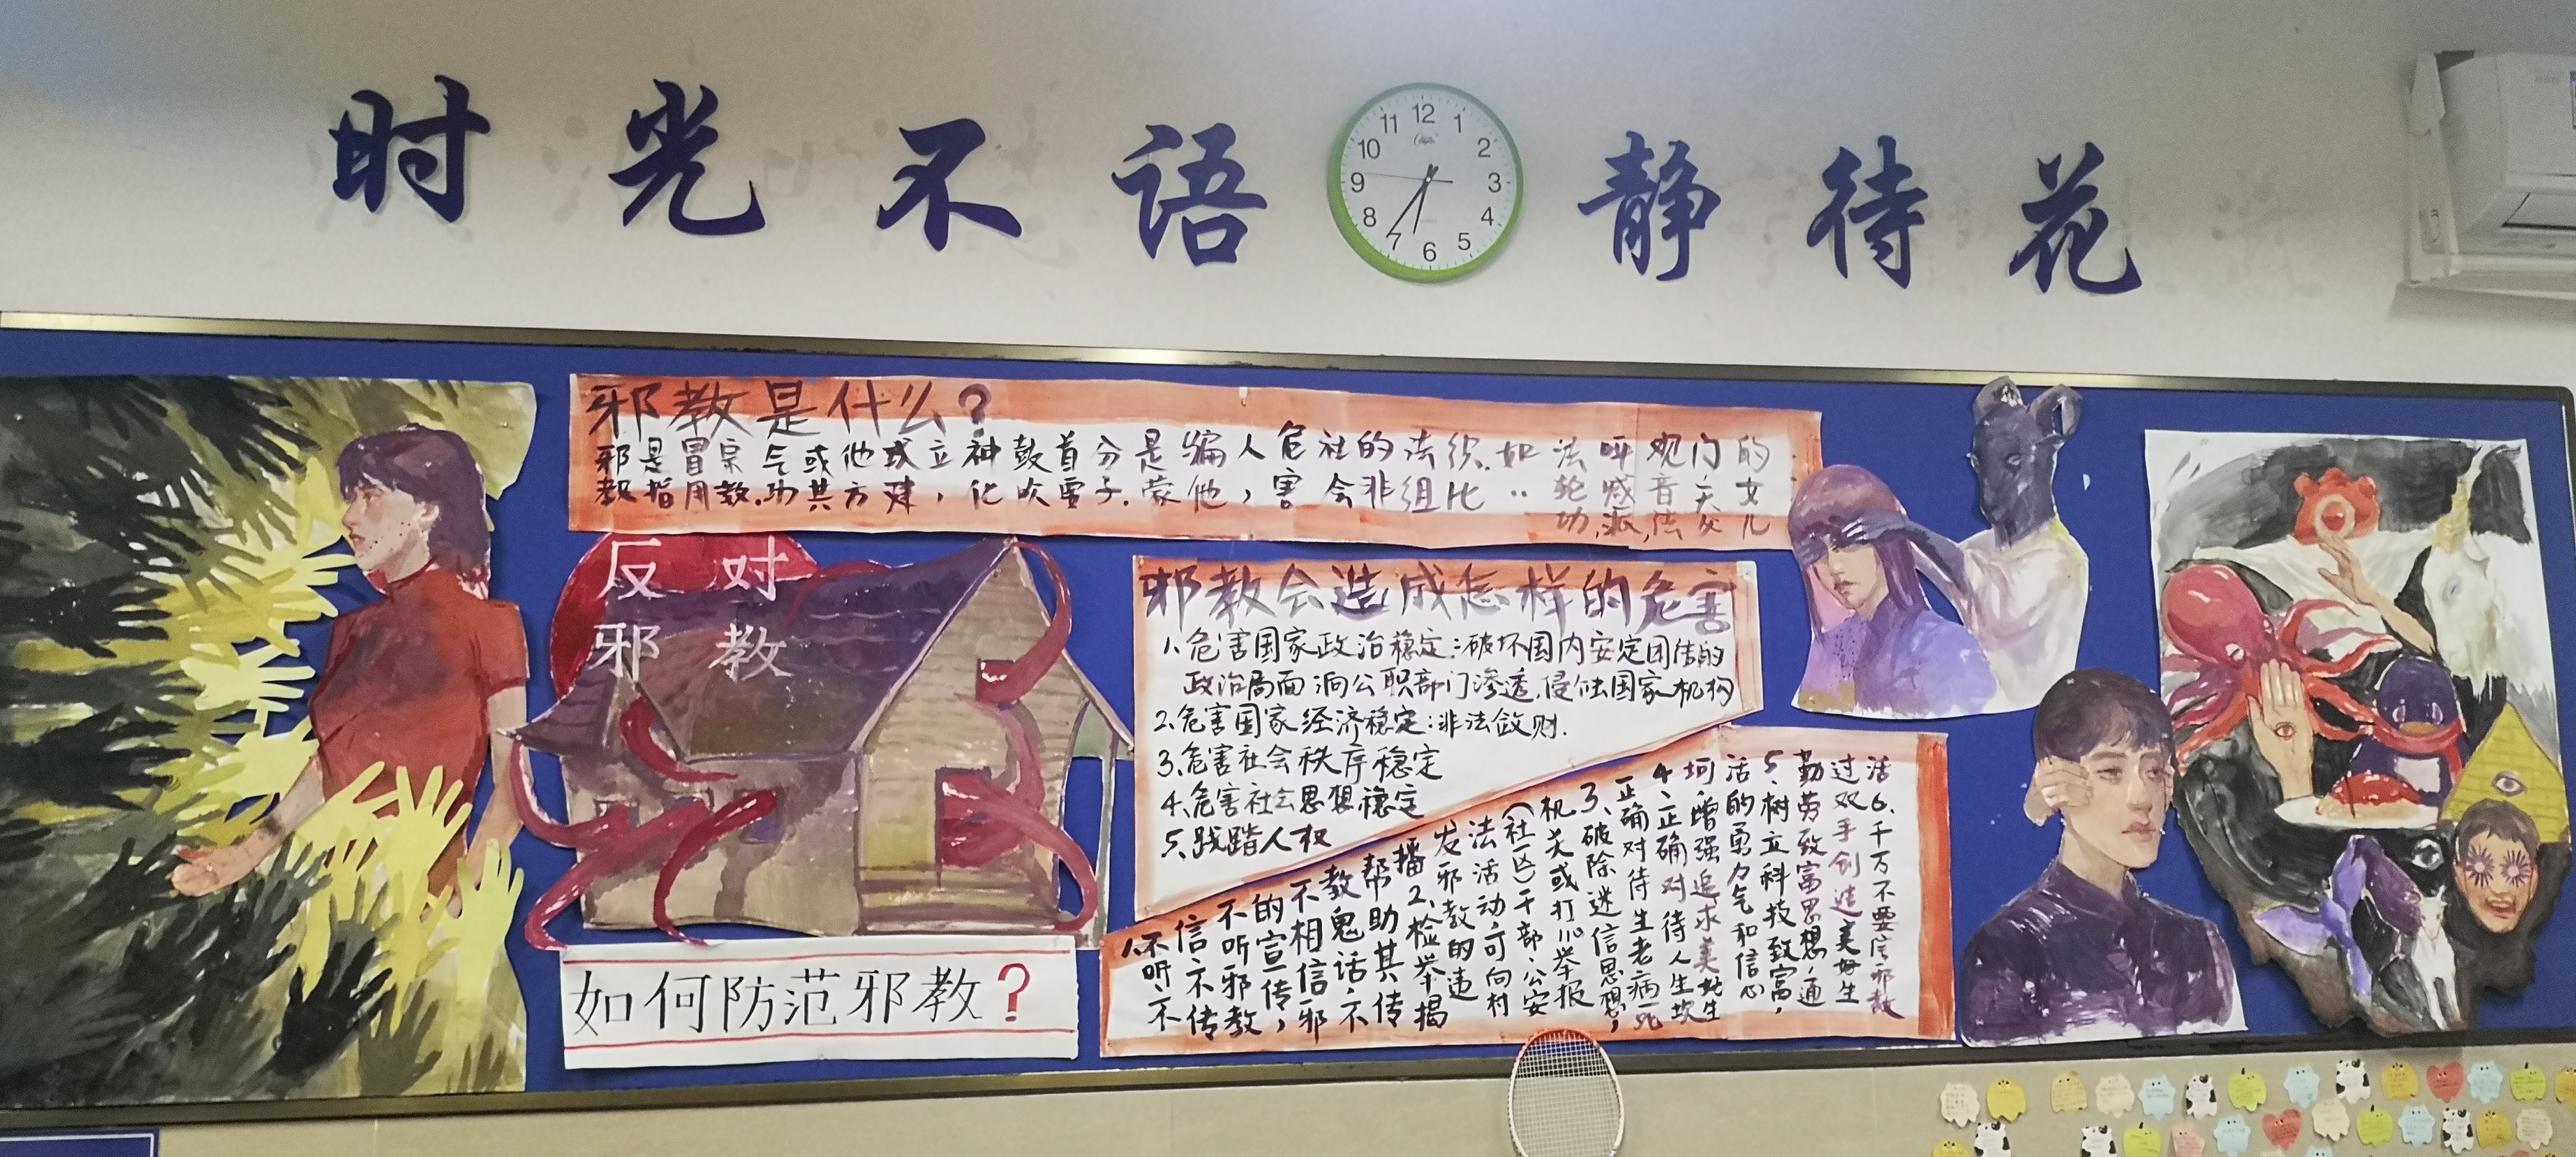 时光不语
静待花
12
1
2
3
4
5
6
7
8
9
10
11
邪教是什么?
邪教是指冒用宗教.气功或其他方或建立,神化鼓吹首分子.是蒙骗他人,危害社会的非法组织.比如..法轮功,呼喊派,观音法门,的女儿
反对
邪教
邪教会造成怎样的危害
1.危害国家政治稳定:破坏国内安定团结的
政治局面 向公职部门渗透,侵蚀国家机构
2.危害国家经济稳定:非法敛财.
3.危害社会秩序稳定
4.危害社会思想稳定
5.践踏人权
如何防范邪教?
1.不听、不
信、不传
不听邪教
的宣传,
不相信邪
教鬼话,不
帮助其传
播2、检举揭
发邪教的违
法活动可向村
(社区)干部、公安
机关或打110举报
3、破除迷信思想,
正确对待生老病死
4、正确对待人生坎
坷,增强追求美好生
活的勇气和信心
5、树立科技致富,
勤劳致富思想,通
过双手创造美好生
活6.千万不要信邪教